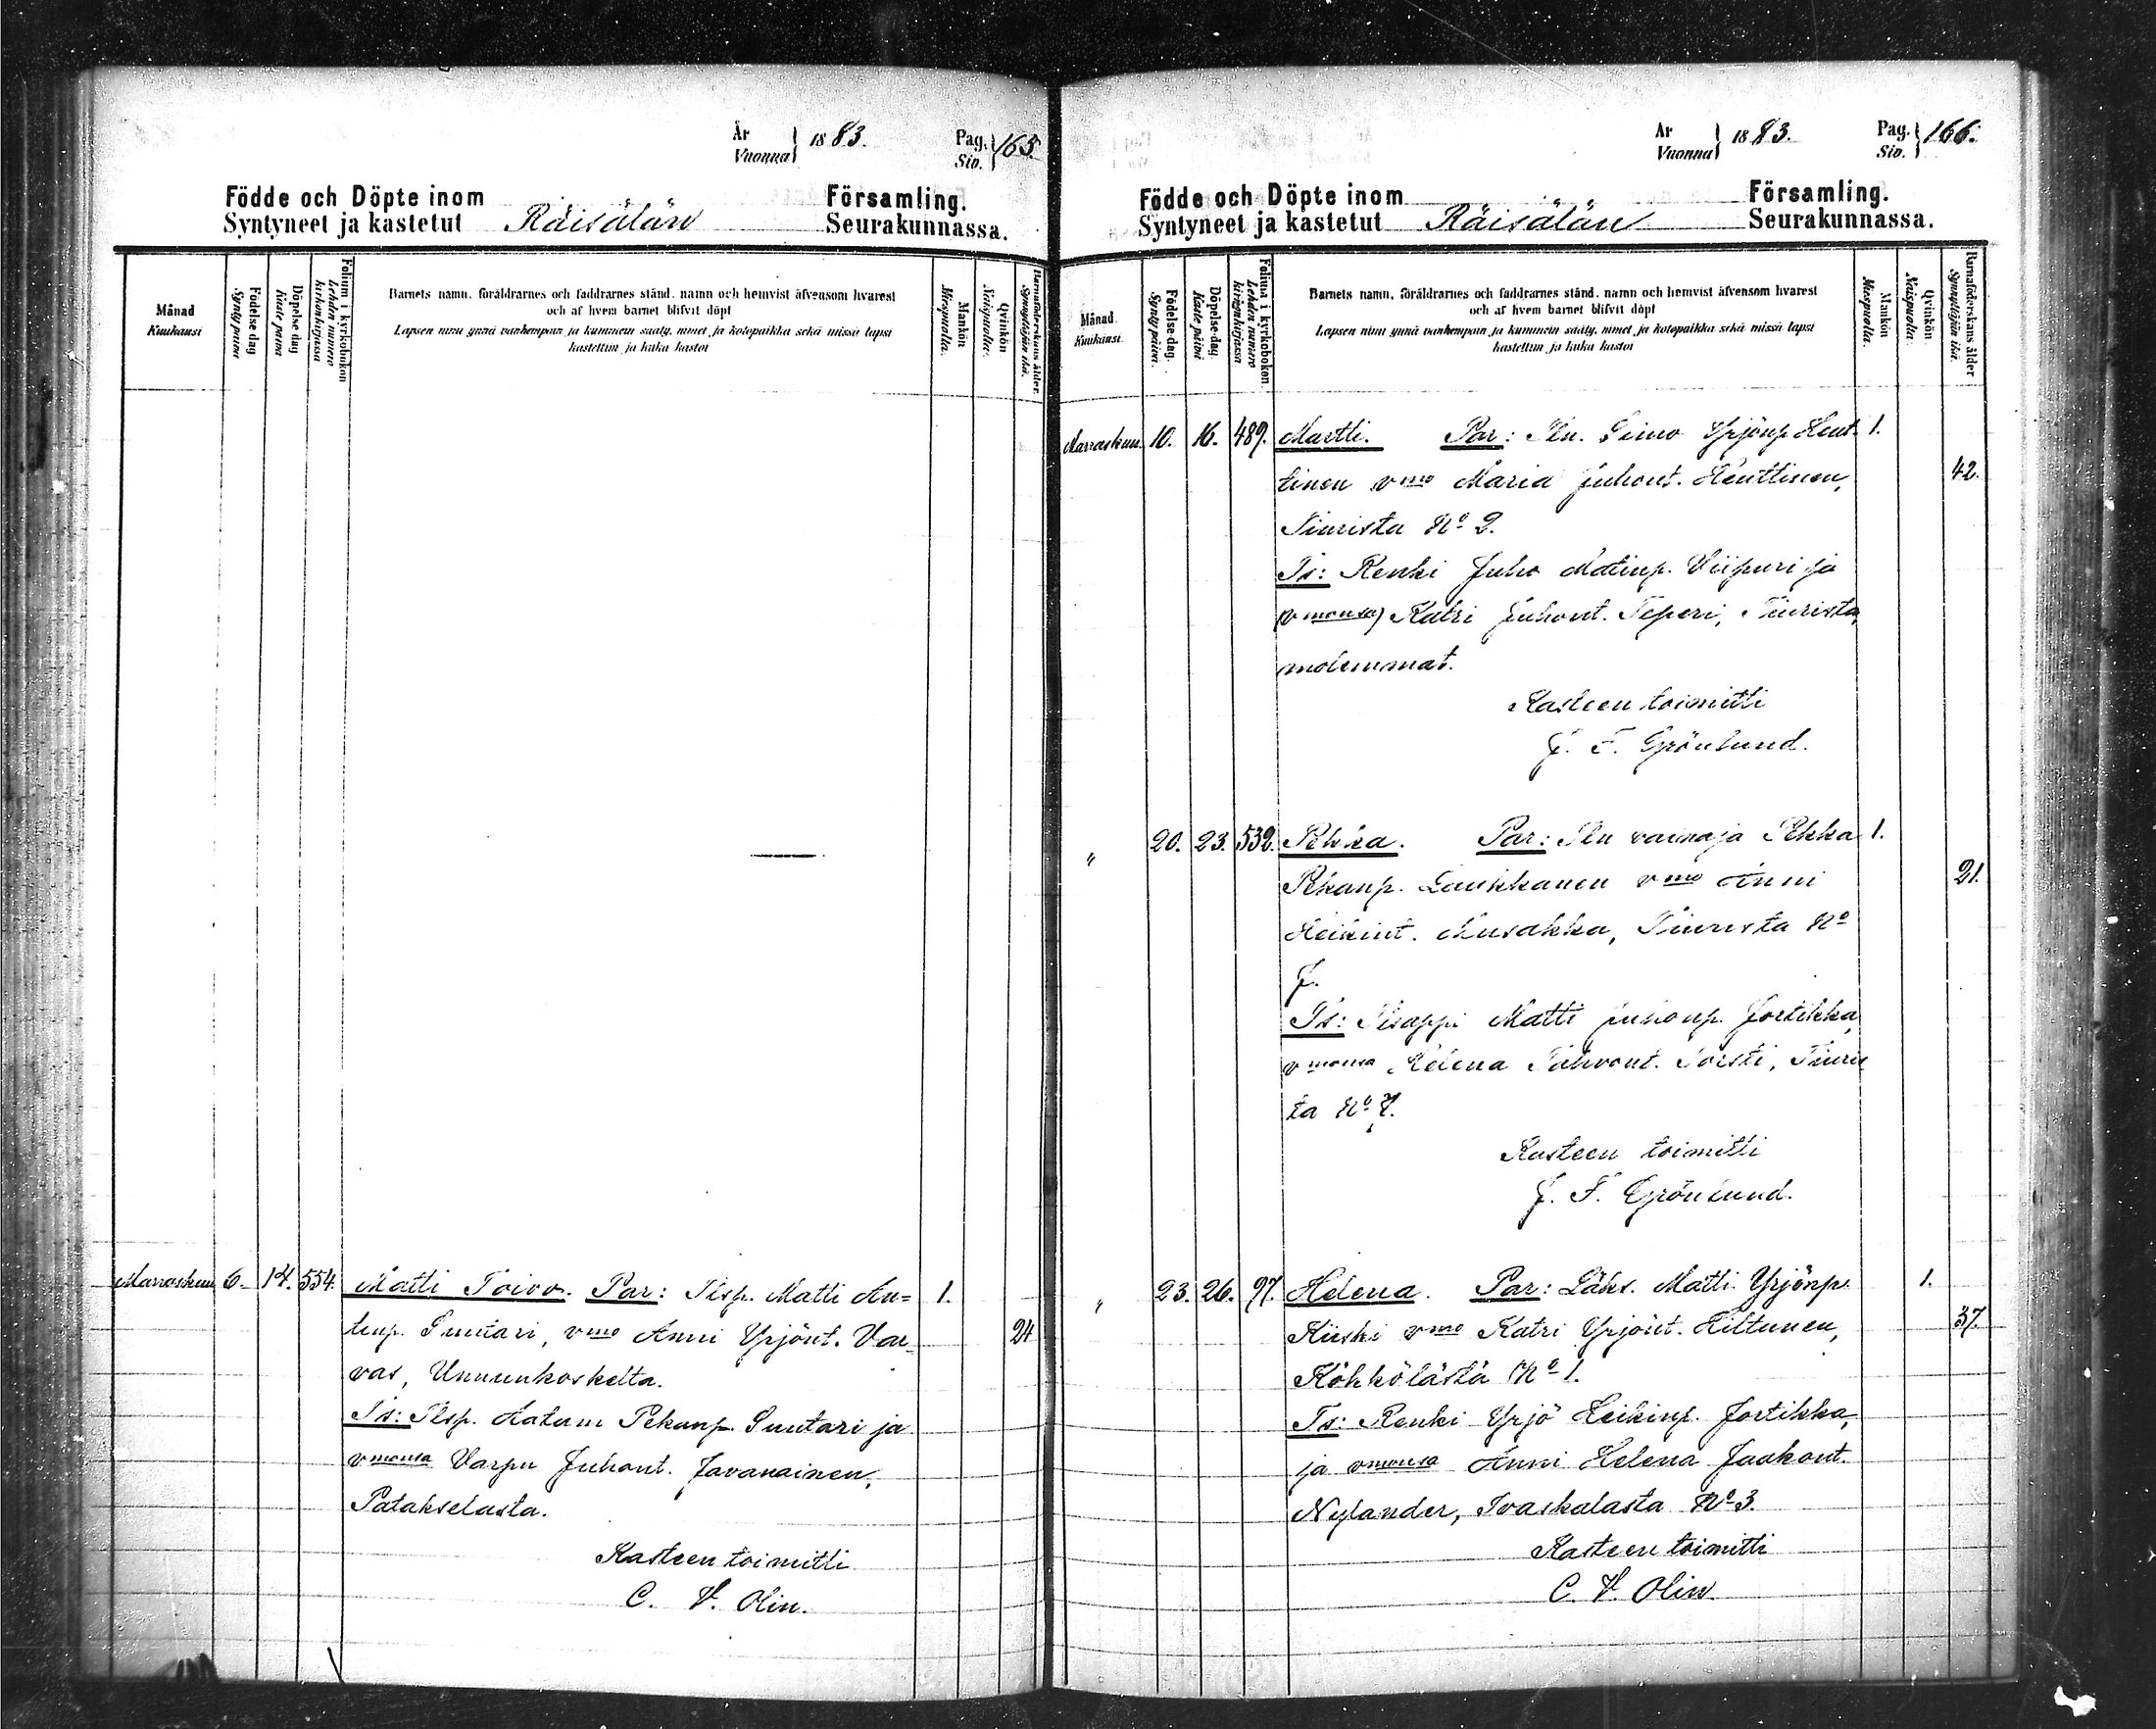 År
Vuonna } 1883. Pag.
Siv. } 165.
Födde och Döpte inom Församling.
Syntyneet ja kastetut Räisälän Seurakunnassa.
Månad
Kuukausi
Födelse dag
Synty päivä
Döpelse dag
Kaste päivä
Folium i kyrkoboken
Lehden numero kirkonkirjassa
Barnets namn, föräldrarnes och faddrarnes stånd, namn och hemvist äfvensom hvarest
och af hvem barnet blifvit döpt
Lapsen nimi ynnä vanhempain ja kummein sääty, nimet ja kotopaikka sekä missä lapsi
kastettiin ja kuka kastoi
Mankön
Miespuolta.
Qvinkön
Naispuolta.
Barnaföderskans ålder
Synnyttäjän ikä.
Marraskuu 6. 14. 554. Matti Toivo. Par: Tlisp. Matti An= 1.
tinp. Suutari, vmo Anni Yrjönt. Var= 24
vas, Unnunkoskelta.
Ts: Tlsp. Aatam Pekanp. Suutari ja
vmonsa Varpu Juhont. Javanainen,
Patakselasta.
Kasteen toimitti
C. V. Olin.
År
Vuonna } 1883. Pag.
Siv. } 166.
Födde och Döpte inom Församling.
Syntyneet ja kastetut Räisälän Seurakunnassa.
Månad
Kuukausi
Födelse-dag.
Synty päivä.
Döpelse-dag
Kaste päivä
Folium i kyrkoboken
Lehden numero kirkonkirjassa
Barnets namn, föräldrarnes och faddrarnes stånd, namn och hemvist äfvensom hvarest
och af hvem barnet blifvit döpt
Lapsen nimi ynnä vanhempain ja kummein sääty, nimet ja kotopaikka sekä missä lapsi
kastettiin ja kuka kastoi
Mankön
Miespuolta.
Qvinkön
Naispuolta.
Barnaföderskans ålder
Synnyttäjän ikä.
Marraskuu. 10. 16. 489. Martti. Par: Tln. Simo Yrjönp. Hent- 1.
tinen vmo Maria Juhont. Henttinen, 42.
Tiurista No 2.
Ts: Renki Juho Matinp. Viipuri ja
(vmonsa) Katri Juhont. Teperi, Tiurista,
molemmat.
Kasteen toimitti
J. F. Grönlund.
" 20. 23. 532. Pekka. Par: Tln vainaja Pekka 1.
Pekanp. Laukkanen vmo Anni 21.
Heikint. Musakka, Tiurista No
7.
Ts: Matti Juhonp. Jortikka,
vmonsa Helena Pahvont. Torsti, Tiuris
ta No 7.
Kasteen toimitti
J. F. Grönlund.
" 23. 26. 97. Helena. Par: Läks. Matti Yrjönp. 1.
Kiiski vmo Katri Yrjönt. Hiltunen, 37.
Köhkölästä No 1.
Ts: Renki Yrjö Heikinp. Jortikka,
ja vmonsa Anni Helena Jaakont.
Nylander, Ivaskalasta No 3.
Kasteen toimitti
C. V. Olin.